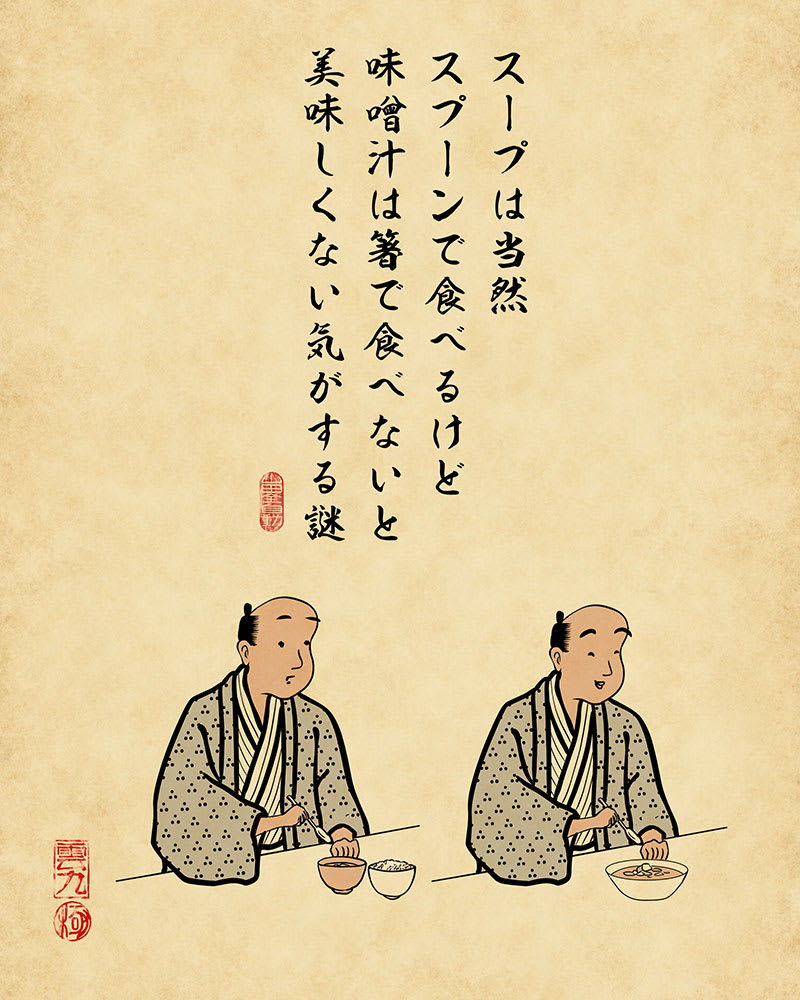 スープは当然
スプーンで食べるけど
味噌汁は箸で食べないと
美味しくない気がする謎